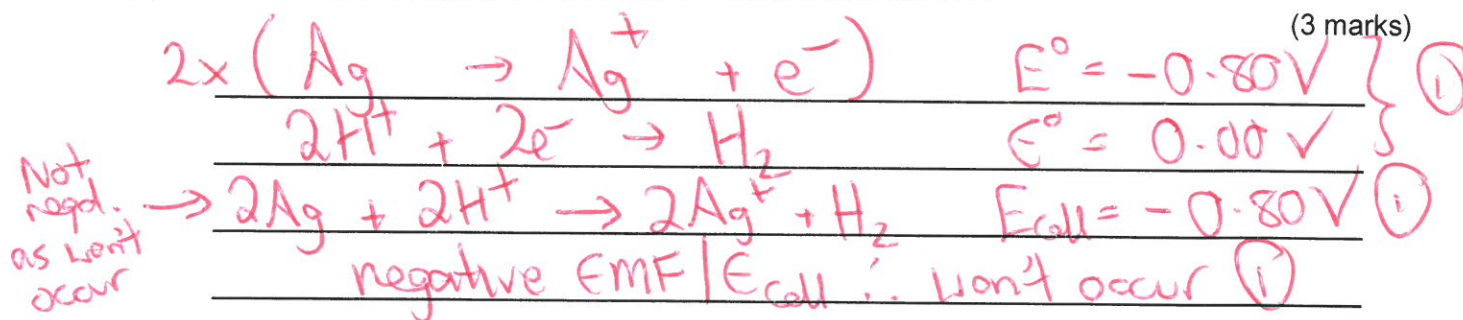 (3 marks)
2x ( Ag → Ag⁺ + e⁻ ) E° = -0.80V } ①
2H⁺ + 2e⁻ → H₂ E° = 0.00V
Not reqd. as won't occur → 2Ag + 2H⁺ → 2Ag⁺ + H₂ Ecell = -0.80V ①
negative EMF | Ecell ∴ won't occur ①